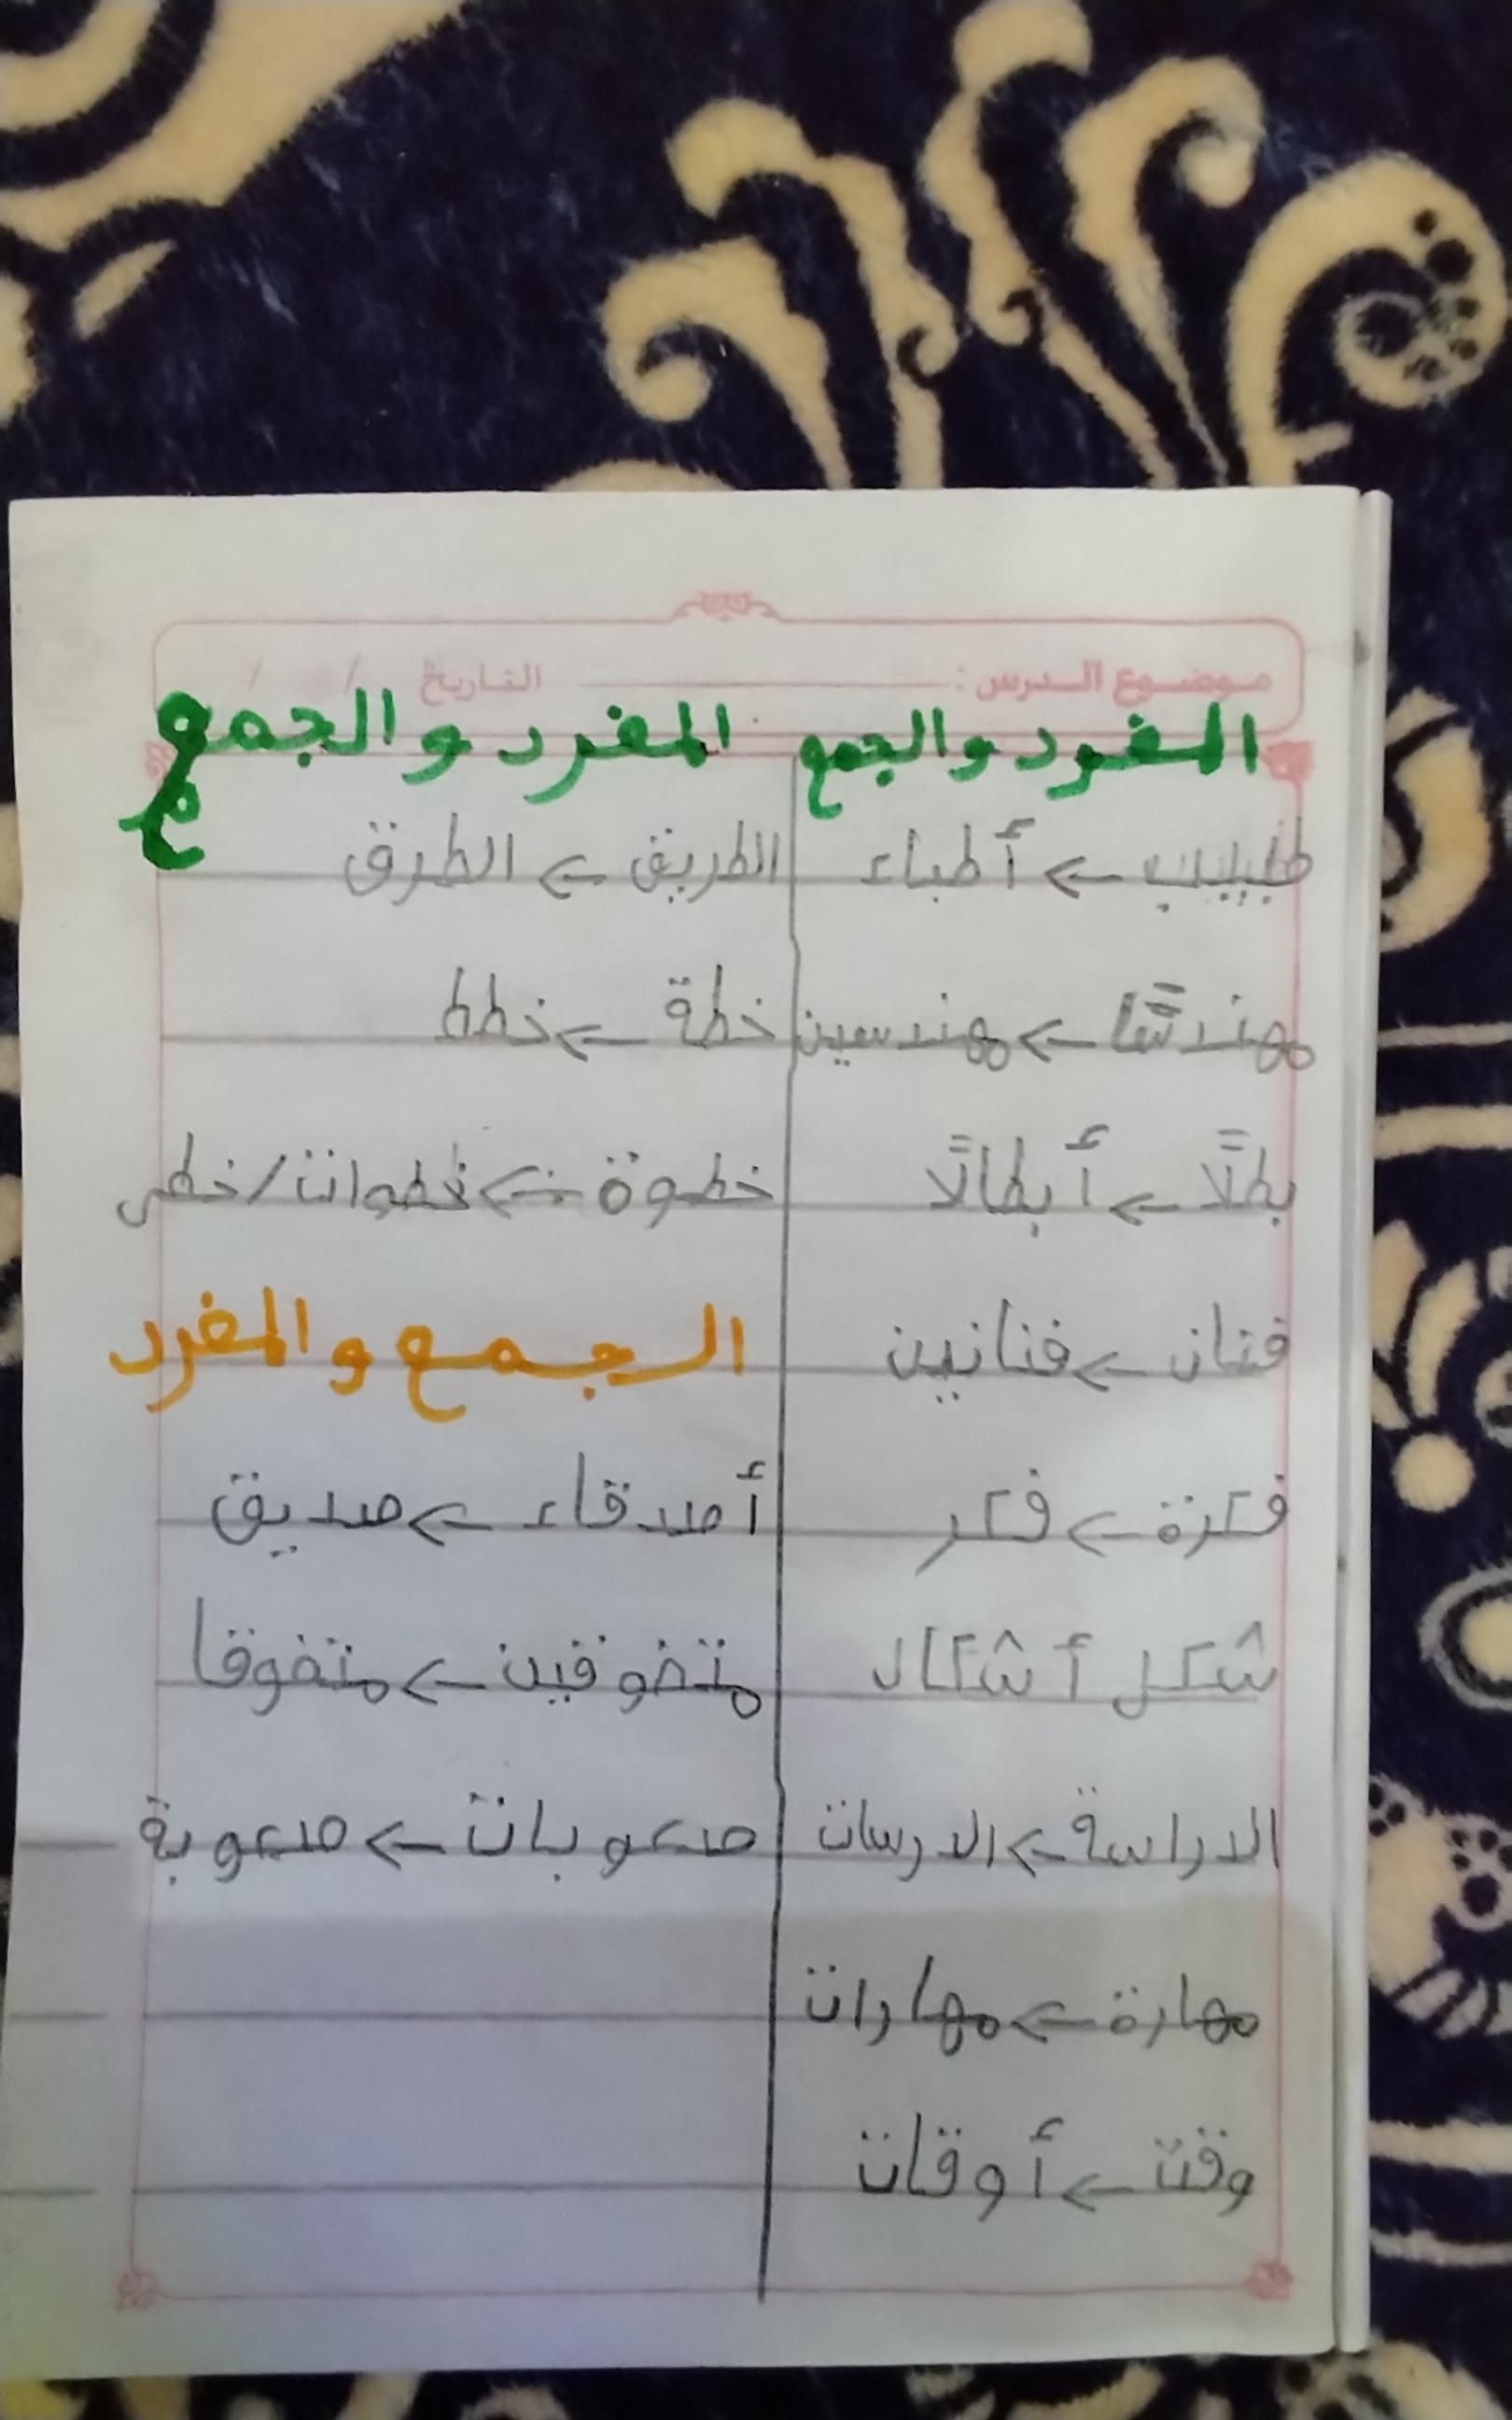 موضوع الدرس : التاريخ / /
المفرد والجمع
طبيب ← أطباء
مهندسًا ← مهندسين
بطلًا ← أبطالًا
فنان ← فنانين
فكرة ← فكر
شكل أشكال
الدراسة ← الدرسات
مهارة ← مهارات
وقت ← أوقات
المفرد والجمع
الطريق ← الطرق
خطة ← خطط
خطوة ← خطوات/خطى
الجمع والمفرد
أصدقاء ← صديق
متفوقين ← متفوقا
صعوبات ← صعوبة